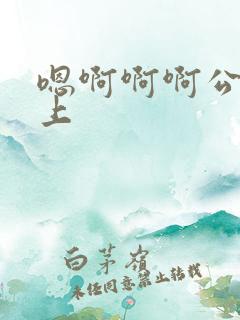 嗯啊啊啊公
上
白茅岭
未经同意禁止转载